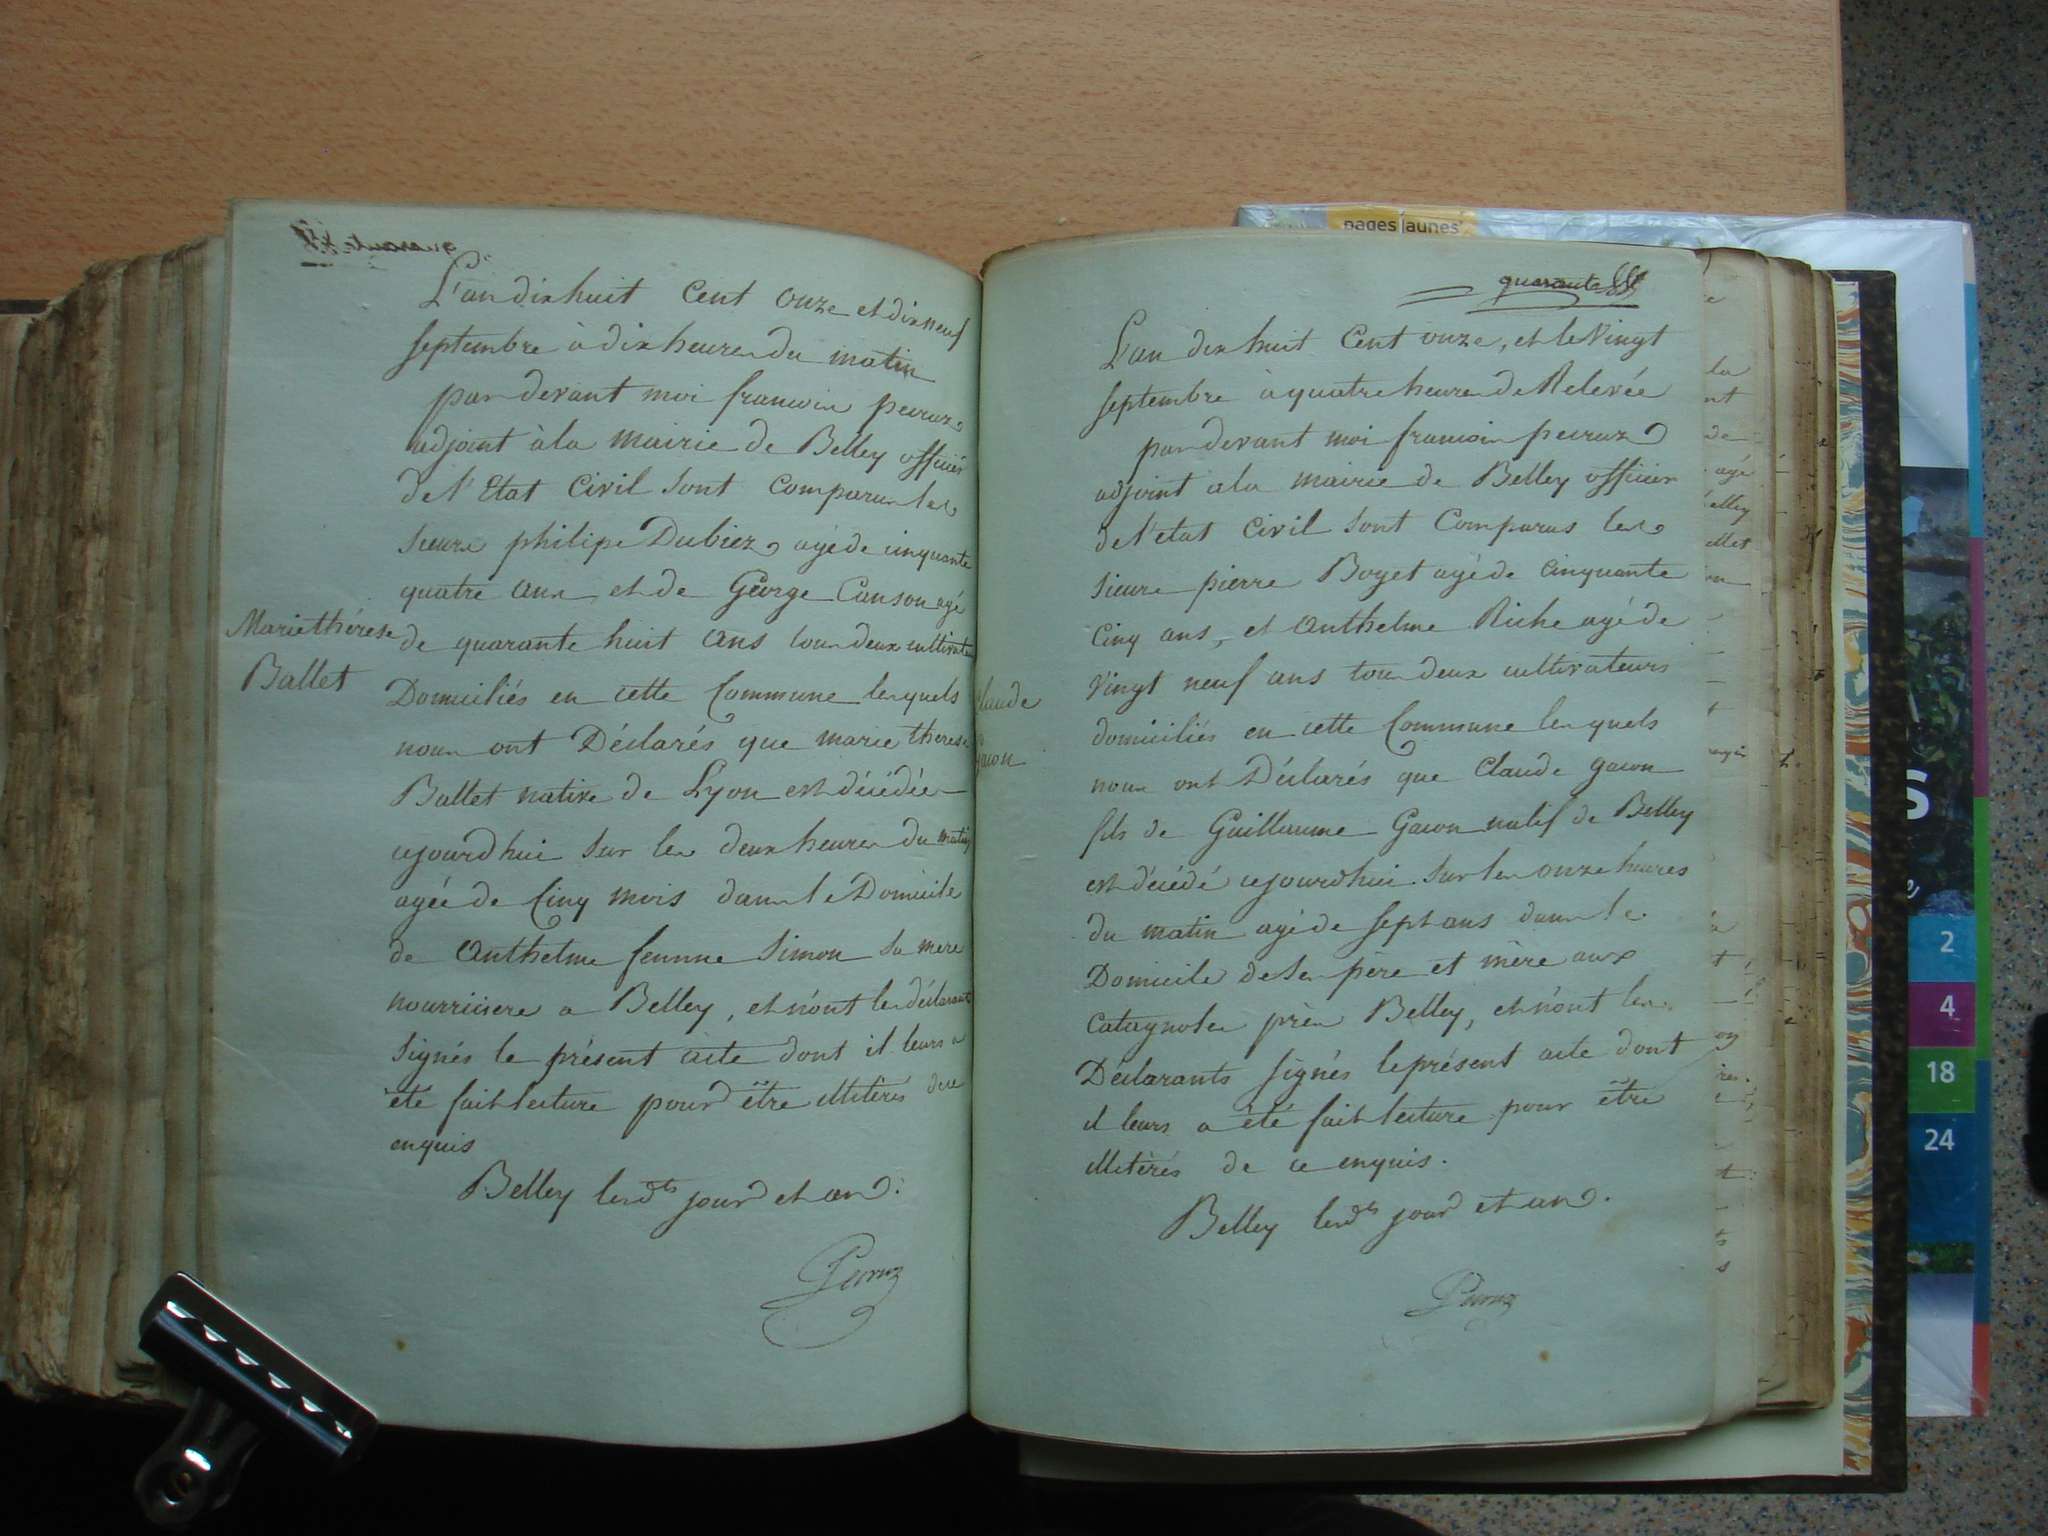 L'an dix huit Cent onze et dix neuf
septembre à dix heures du matin
par devant moi francois peiruz
adjoint à la mairie de Belley officier
de l'Etat Civil sont comparus les
sieurs philipe Dubiez agé de cinquante
quatre ans et de George Canson agé
de quarante huit ans tous deux cultivateurs
Domiciliés en cette Commune lesquels
nous ont Déclarés que marie therese
Ballet native de Lyon est décédée
cejourdhui sur les deux heures du matin
agée de Cinq mois dans le Domicile
de Anthelme femme Simon sa mere
nourriciere a Belley, et n'ont les déclarants
signés le présent acte dont il leurs a
été fait lecture pour être illitérés de ce
enquis
Belley les dts jour et an.
Peiruz
Marie thérèse
Ballet
quarante
L'an dix huit Cent onze, et le Vingt
septembre à quatre heures de Relevée
par devant moi francois peiruz
adjoint a la mairie de Belley officier
de l'etat Civil sont Comparus les
sieurs pierre Boget agé de Cinquante
Cinq ans, et Anthelme Riche agé de
Vingt neuf ans tous deux cultivateurs
domiciliés en cette Commune lesquels
nous ont Déclarés que Claude gacon
fils de Guillaume Gacon natif de Belley
est décédé cejourdhui sur les onze heures
du matin agé de sept ans dans le
Domicile de ses père et mère aux
Catagnoles près Belley, et n'ont les
Déclarants signés le présent acte dont
il leurs a été fait lecture pour être
illitérés de ce enquis.
Belley les dts jour et an.
Peiruz
Claude
gacon
pages jaunes
2
4
18
24